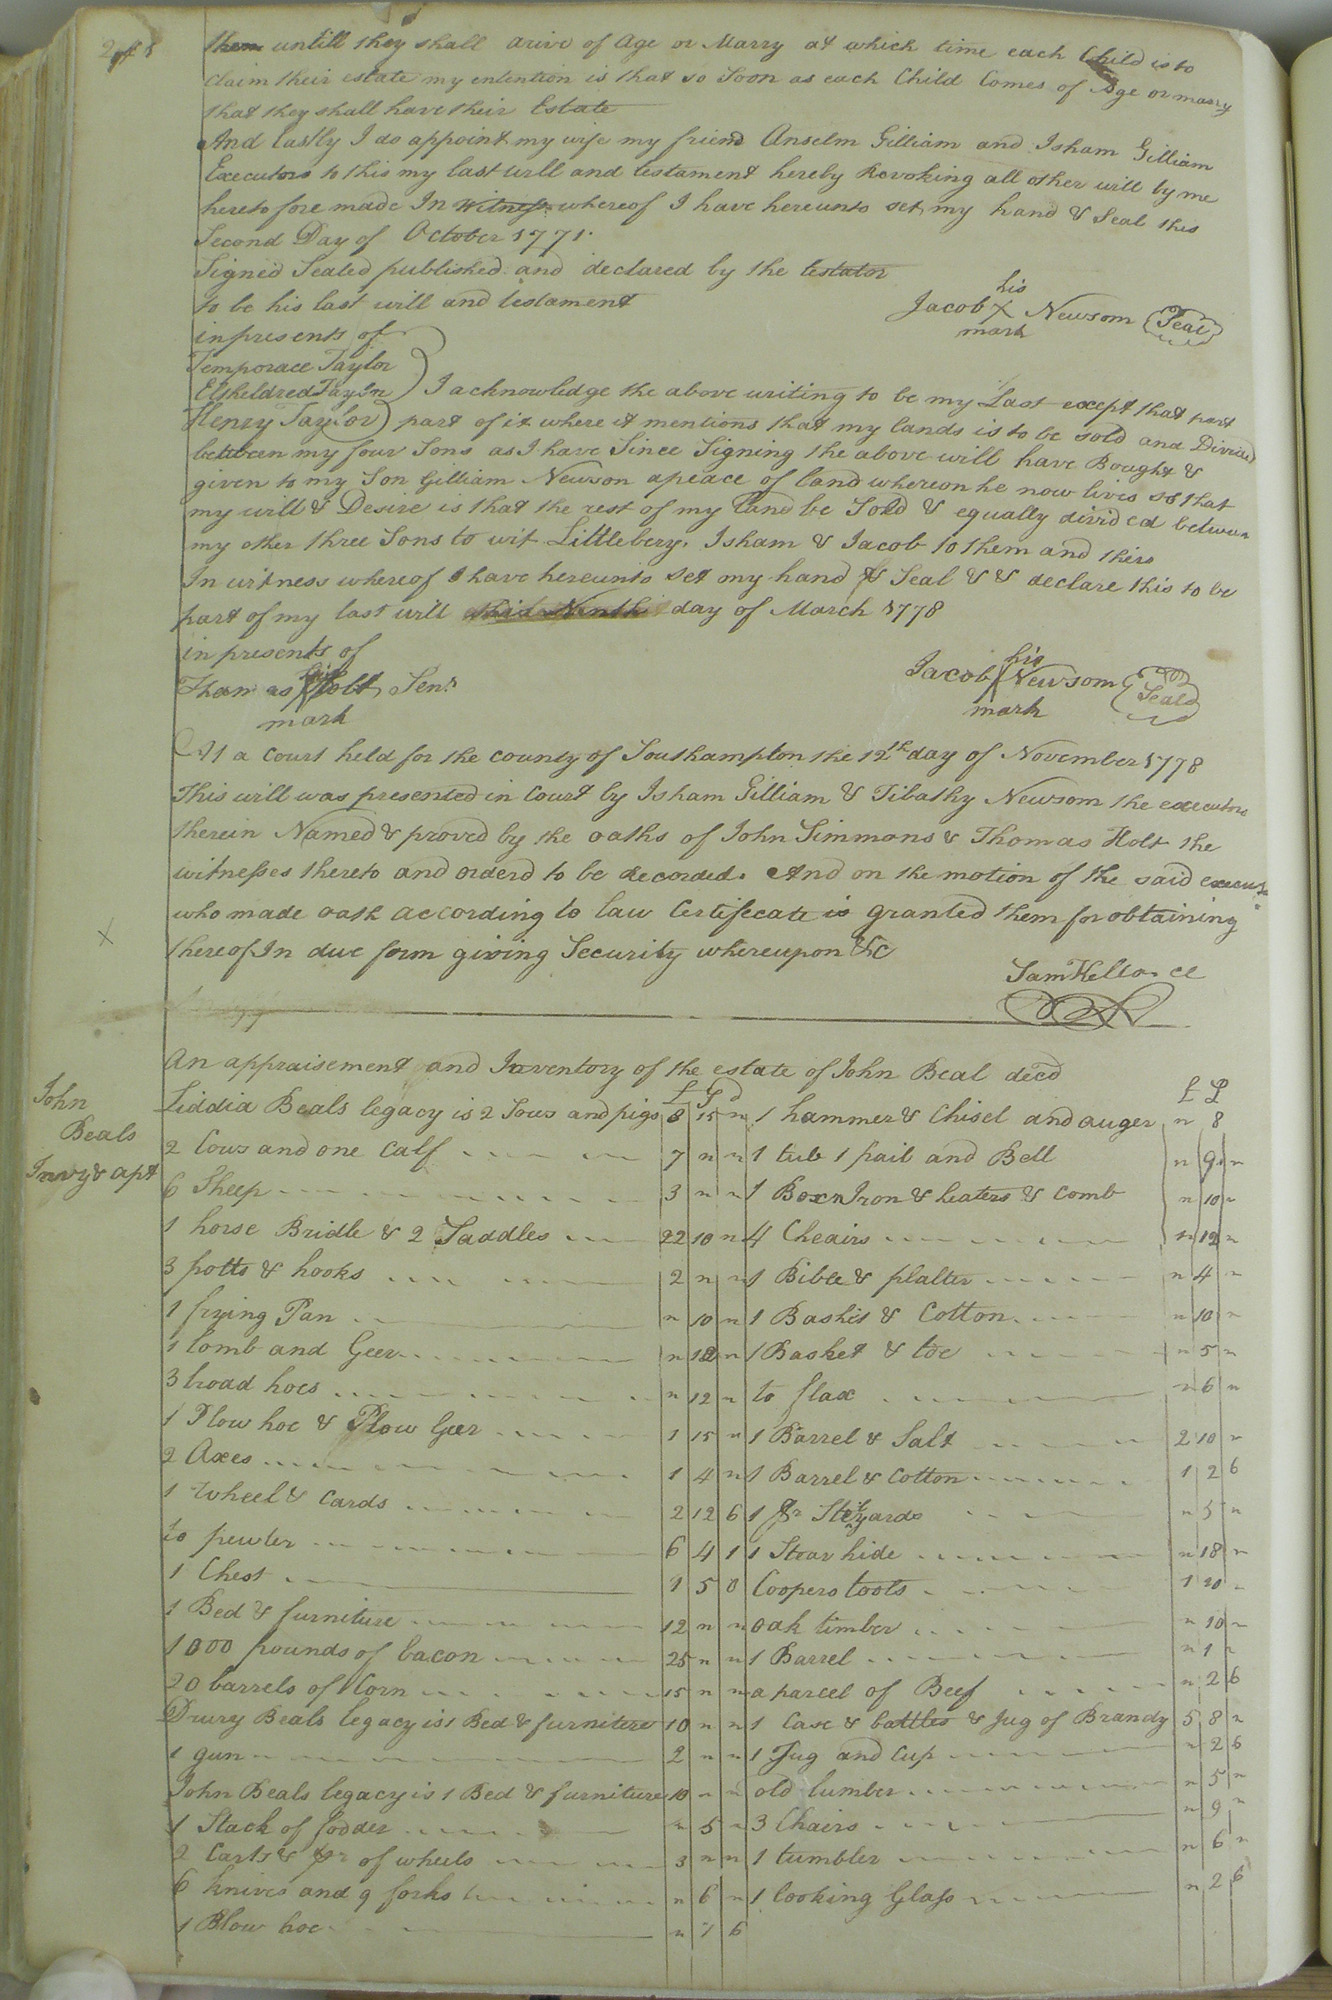 them untill they shall arive of Age or Marry at which time each Child is to
claim their estate my entention is that so Soon as each Child Comes of Age or marry
that they shall have their Estate
And lastly I do appoint my wife my friend Anselm Gilliam and Isham Gilliam
Executors to this my last will and testament hereby Revoking all other will by me
heretofore made In Witness whereof I have hereunto set my hand & Seal this
Second Day of October 1771.
Signed Sealed published and declared by the testator
to be his last will and testament
his
Jacob X Newsom Seal
mark
in presents of
Temporace Taylor
Etheldred Taylor
Henry Taylor
I acknowledge the above writing to be my Last except that part
part of it where it mentions that my lands is to be sold and Divided
between my four Sons as I have Since Signing the above will have Bought &
given to my Son Gilliam Newson a peace of land whereon he now lives so that
my will & Desire is that the rest of my Land be Sold & equally divided between
my other three Sons to wit Littlebery, Isham & Jacob to them and theirs
In witness whereof I have hereunto set my hand & Seal & & declare this to be
part of my last will this Ninth day of March 1778
in presents of
his
Thomas Holt Senr
mark
his
Jacob Newsom Seal
mark
At a Court held for the county of Southampton the 12th day of November 1778
This will was presented in Court by Isham Gilliam & Tibathy Newsom the executors
therein Named & proved by the oaths of John Simmons & Thomas Holt the
witnesses thereto and orderd to be Recorded. And on the motion of the said
who made oath according to law Certifecate is granted them for obtaining
thereof In due form giving Security whereupon &c
Sam Kello. Cl
An appraisement and Inventory of the estate of John Beal decd
John
Beals
Invy & apt
£ S d
Liddia Beals legacy is 2 Sows and pigs 8 15 "
2 Cows and one Calf 7 " "
6 Sheep 3 " "
1 horse Bridle & 2 Saddles 22 10 "
3 potts & hooks 2 " "
1 frying Pan " 10 "
1 lomb and Geer " 12 "
3 broad hoes " 12 "
1 Plow hoe & Plow Geer 1 15 "
2 Axes 1 4 "
1 Wheel & Cards 2 12 6
to pewter 6 4 1
1 Chest 1 5 0
1 Bed & furniture 12 " "
1000 pounds of bacon 25 " "
20 barrels of Corn 15 " "
Drury Beals legacy is 1 Bed & furniture 10 " "
1 gun 2 " "
John Beals legacy is 1 Bed & furniture 10 " "
1 Stack of fodder " 5 "
2 Carts & pr of wheels 3 " "
6 knives and 9 forks " 6 "
1 Plow hoe " 7 6
£
1 hammer & Chisel and auger " 8
1 tub 1 pail and Bell " 9 "
1 Box Iron & heaters & Comb " 10 "
4 Cheairs " 12 "
1 Bible & platter " 4 "
1 Baskit & Cotton " 10 "
1 Basket & toe " 5 "
to flax " 6 "
1 Barrel & Salt 2 10 "
1 Barrel & Cotton 1 2 6
1 pr Stilyards " 5 "
1 Stear hide " 18 "
Coopers tools 1 10 "
oak timber " 10 "
1 Barrel " 1 "
a parcel of Beef " 2 6
1 Case & bottles & Jug of Brandy 5 8 "
1 Jug and Cup " 2 6
old lumber " 5 "
3 Chairs " 9 "
1 tumbler " 6 "
1 looking Glass " 2 6